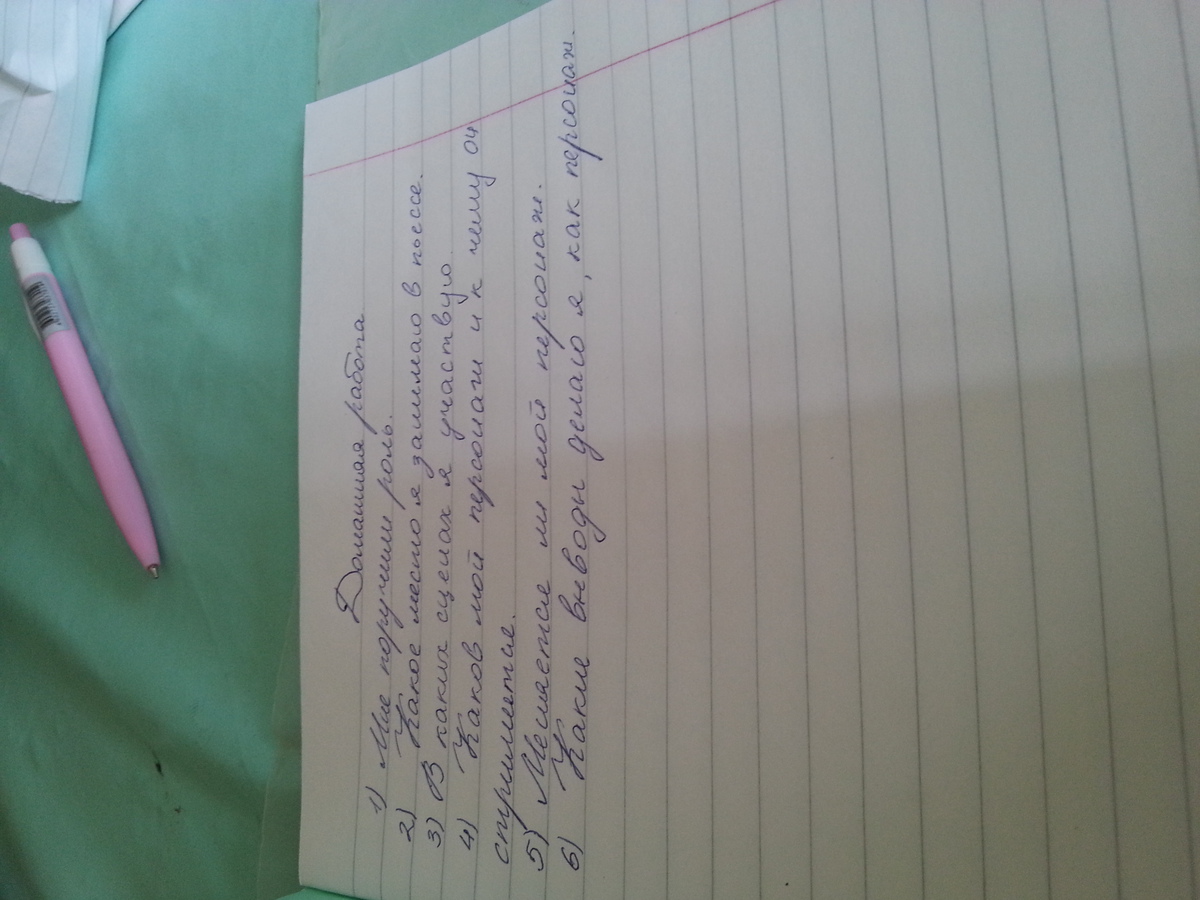 Домашняя работа
1) Мне поручили роль.
2) Какое место я занимаю в пьессе.
3) В каких сценах я участвую.
4) Каков мой персонаж и к чему он
стримится.
5) Меняется ли мой персонаж.
6) Какие выводы делаю я, как персонаж.